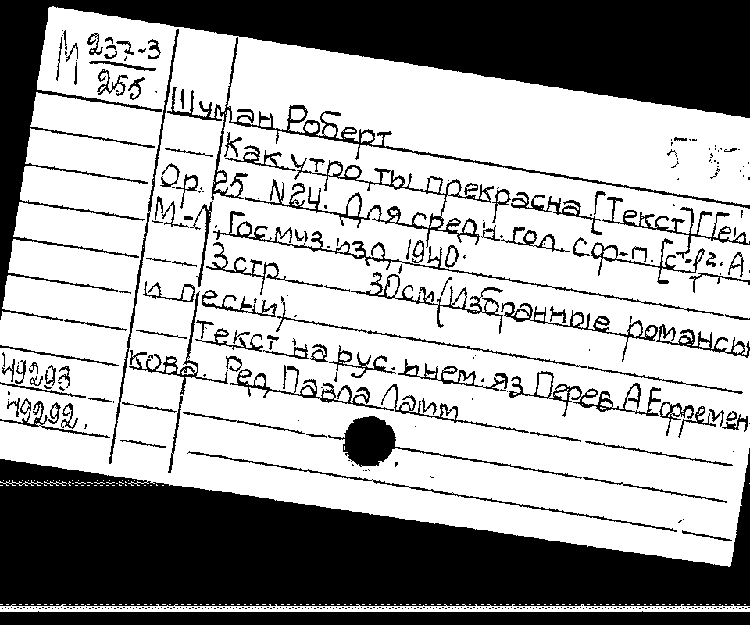 М 237-3
255
Шуман, Роберт
55
Как утро, ты прекрасна [Текст] Гей
Op. 25 N24. Для средн. гол. с ф-п. [ст-рг. А.
М.-Л, Гос. муз. изд, 1940.
3 стр. 30см (Избранные романсы
и песни).
Текст на рус. и нем. яз Перев. А Ефремен
кова. Ред Павла Ламм
49293
49292.